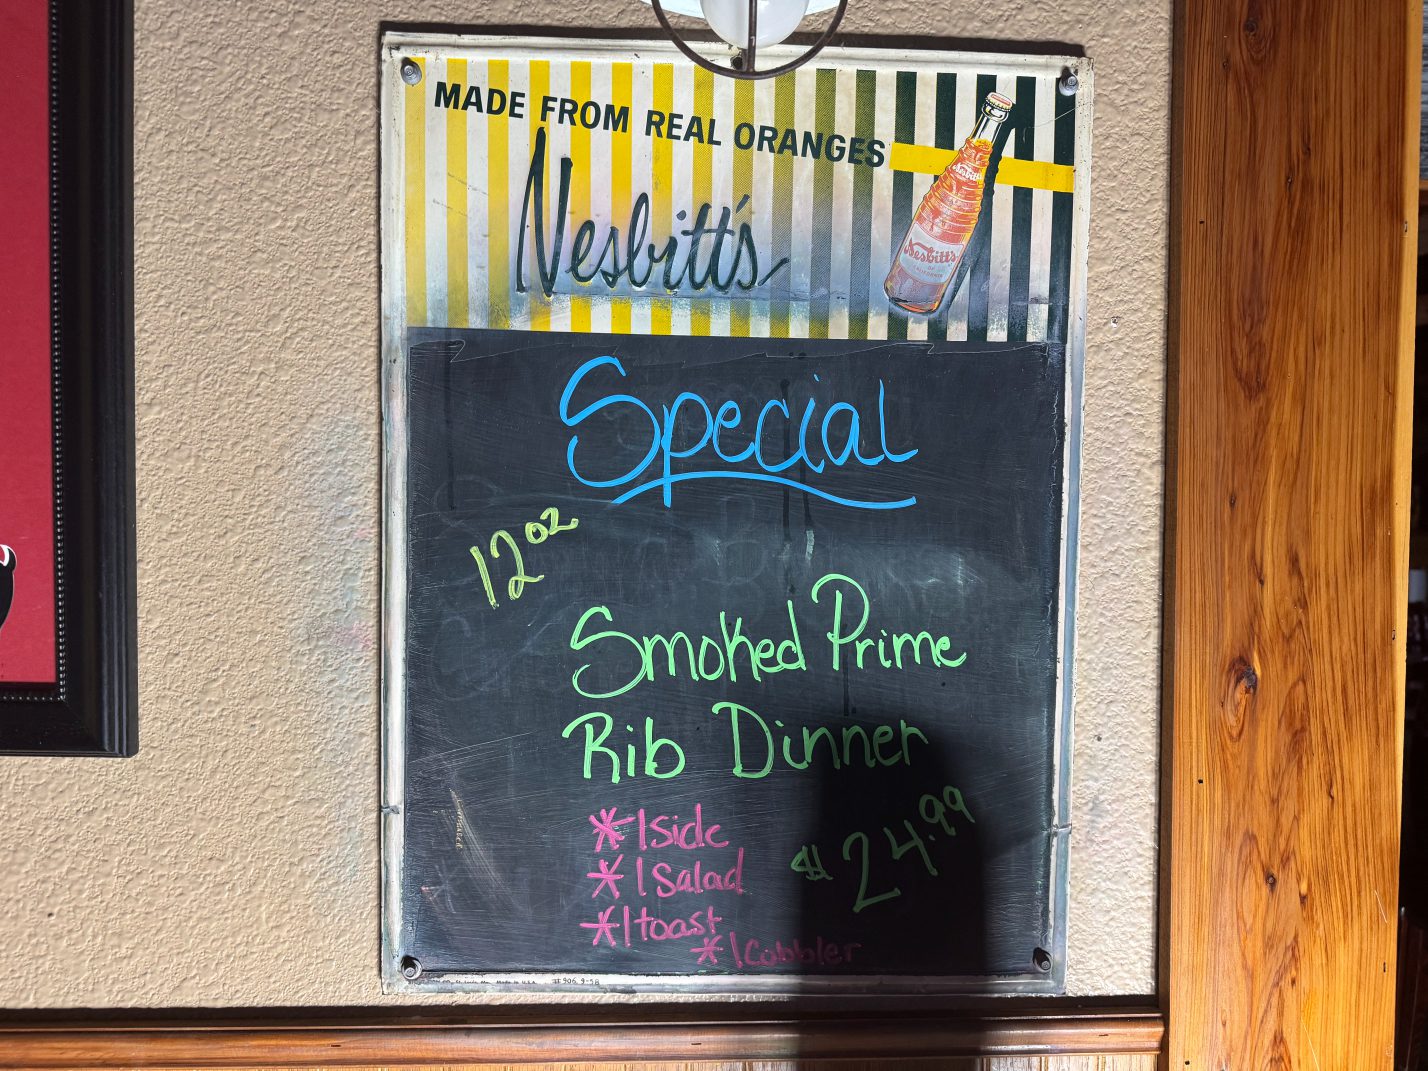 MADE FROM REAL ORANGES
Nesbitt's
Nesbitt's
OF
CALIFORNIA
Special
12 oz
Smoked Prime
Rib Dinner
* 1 Side
* 1 Salad
* 1 toast
* 1 Cobbler
$24.99